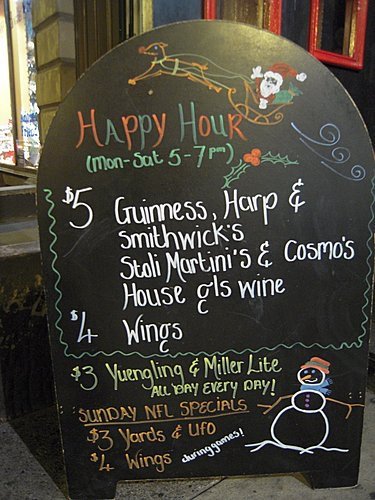 Happy Hour
(Mon-Sat 5-7pm)
$5 Guinness, Harp &
Smithwick's
Stoli Martini's & Cosmo's
House gls wine
$4 Wings
$3 Yuengling & Miller Lite
ALL DAY EVERY DAY!
SUNDAY NFL SPECIALS
$3 Yards & UFO
$4 Wings during games!